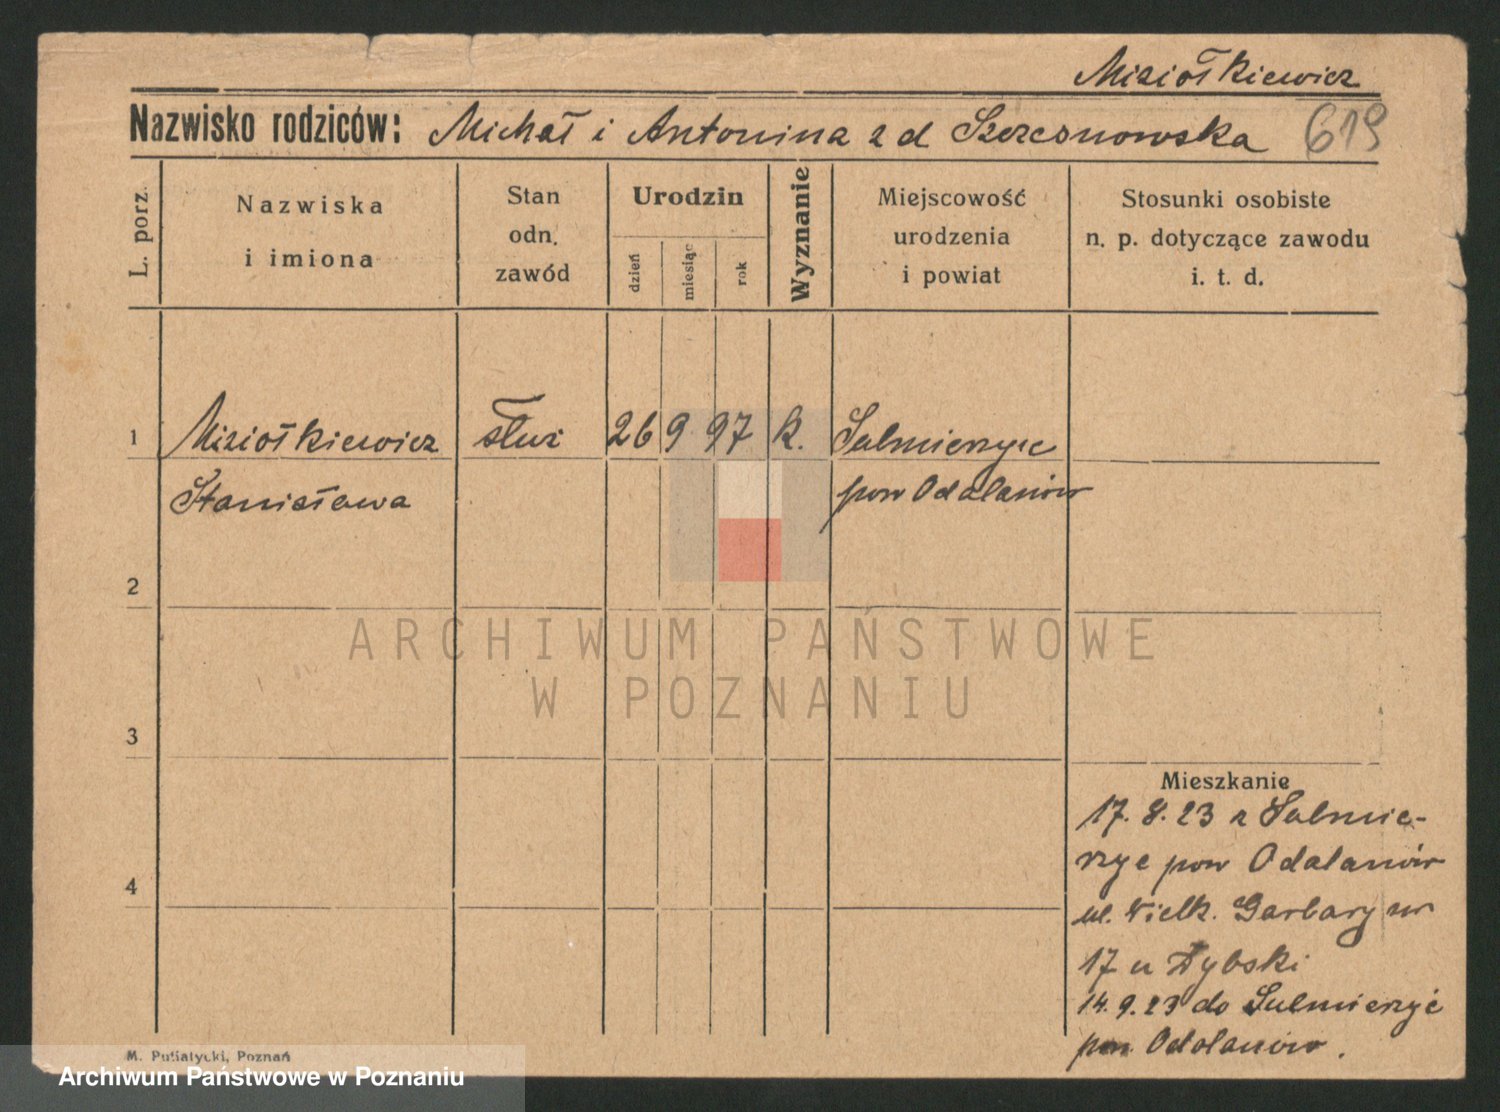 Miziołkiewicz
Nazwisko rodziców: Michał i Antonina z d Szczesnowska 619
L. porz.
Nazwiska
i imiona
Stan
odn.
zawód
Urodzin
dzień
miesiąc
rok
Wyznanie
Miejscowość
urodzenia
i powiat
Stosunki osobiste
n. p. dotyczące zawodu
i. t. d.
1 Miziołkiewicz służ 26 9 97 k. Sulmierzyce
Stanisława pow Odalanów
2
ARCHIWUM PAŃSTWOWE
W POZNANIU
3
Mieszkanie
17. 8. 23 z Sulmie-
rzyc pow Odalanów
4
ul. Wielk. Garbary nr
17 u Dybski
14. 9. 23 do Sulmierzyc
pow Odolanów.
M. Putiatycki, Poznań
Archiwum Państwowe w Poznaniu